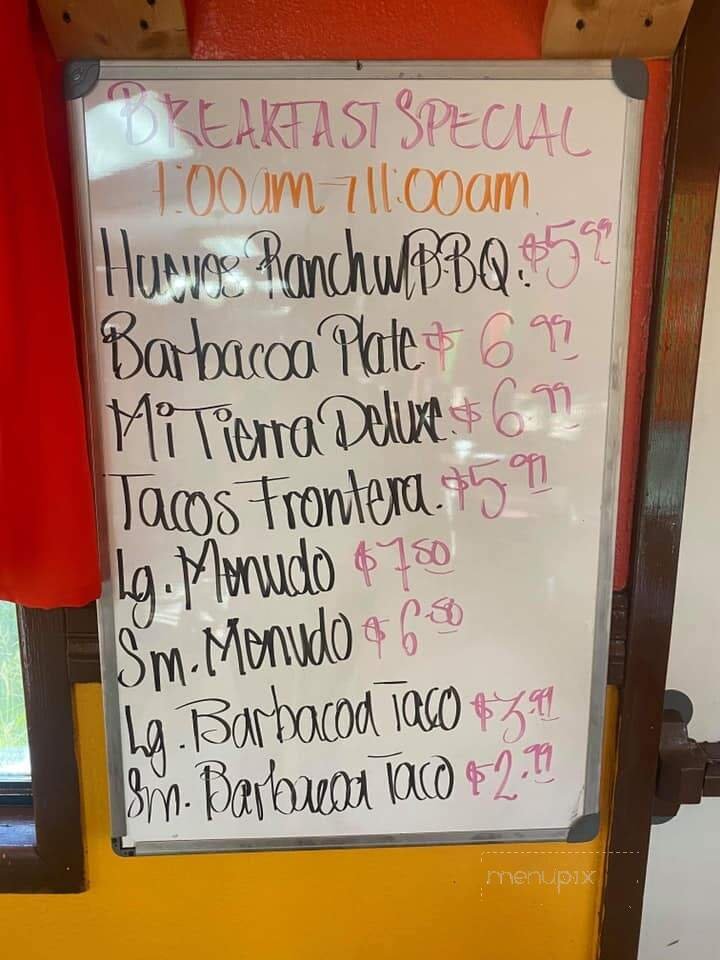 BREAKFAST SPECIAL
7:00am-11:00am
Huevos Ranch w/ BBQ. $5.99
Barbacoa Plate $6.99
Mi Tierra Deluxe. $6.99
Tacos Frontera. $5.99
Lg. Menudo $7.50
Sm. Menudo $6.50
Lg. Barbacoa Taco $3.99
Sm. Barbacoa Taco $2.99
menupix